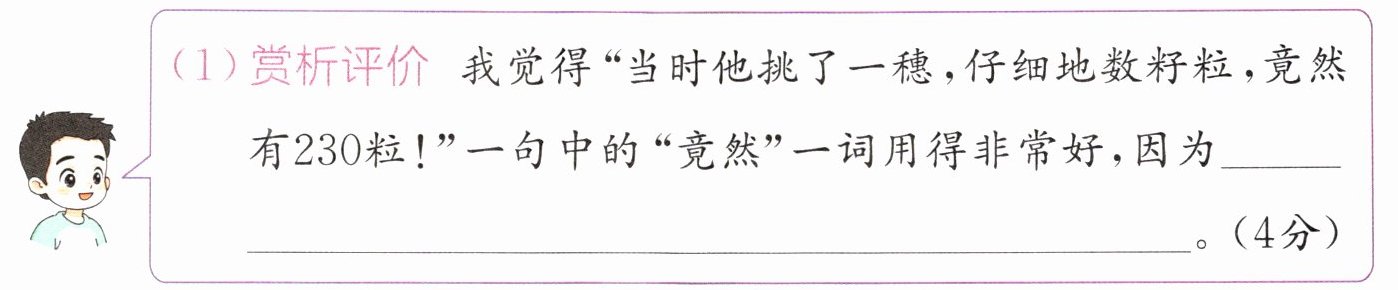 （1）赏析评价 我觉得“当时他挑了一穗，仔细地数籽粒，竟然
有230粒！”一句中的“竟然”一词用得非常好，因为______
______。（4分）